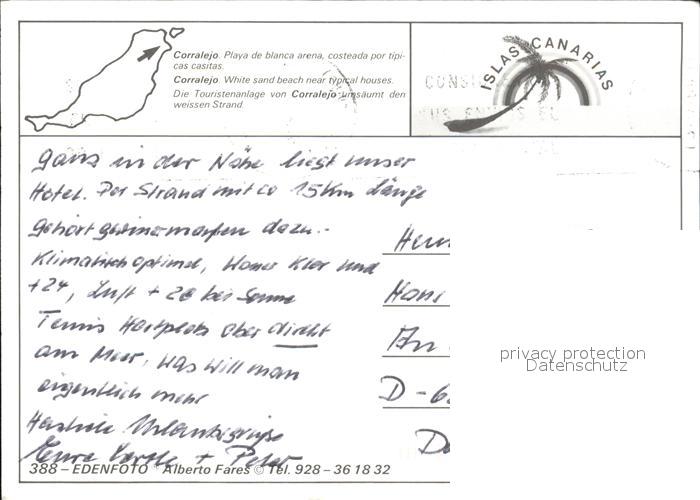 Corralejo. Playa de blanca arena, costeada por típi-
cas casitas.
Corralejo. White sand beach near typical houses.
Die Touristenanlage von Corralejo umsäumt den
weissen Strand.
ISLAS CANARIAS
ganz in der Nähe liegt unser
Hotel. Der Strand mit ca 15 Km Länge
gehört gewissermaßen dazu.-
Klimatisch optimal, Wasser klar und
+24, Luft + 28 bei Sonne
Tennis Hartplatz aber direkt
am Meer, was will man
eigentlich mehr
Herzliche Urlaubsgrüße
Eure + Peter
Herrn
Hans
An
D-6
388 – EDENFOTO Alberto Fares © Tel. 928 – 36 18 32
privacy protection
Datenschutz